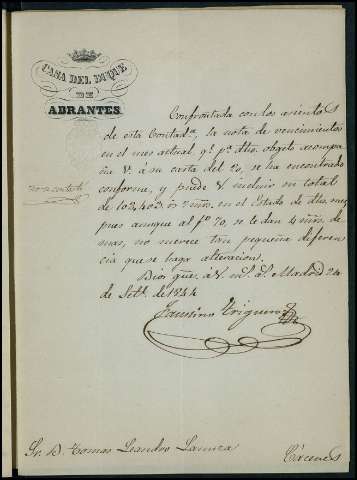 CASA DEL DUQUE
DE
ABRANTES.
Confrontada con los asientos
de esta Contadª. la nota de vencimientos
en el mes actual qe. pª. dho. objeto acompa
ña V. á su carta del 20, se ha encontrado
conforme, y puede V incluir su total
de 102,403 rs 2 mrs. en el Estado de dho. mes,
pues aunque al fº 70, se le dan 4 mrs. de
mas, no merece tan pequeña diferen
cia que se haga alteracion.
Dios gue. á V. ms. as. Madrid 24
de Setbre. de 1844
Faustino Trigueros
Sr. D. Tomas Leandro